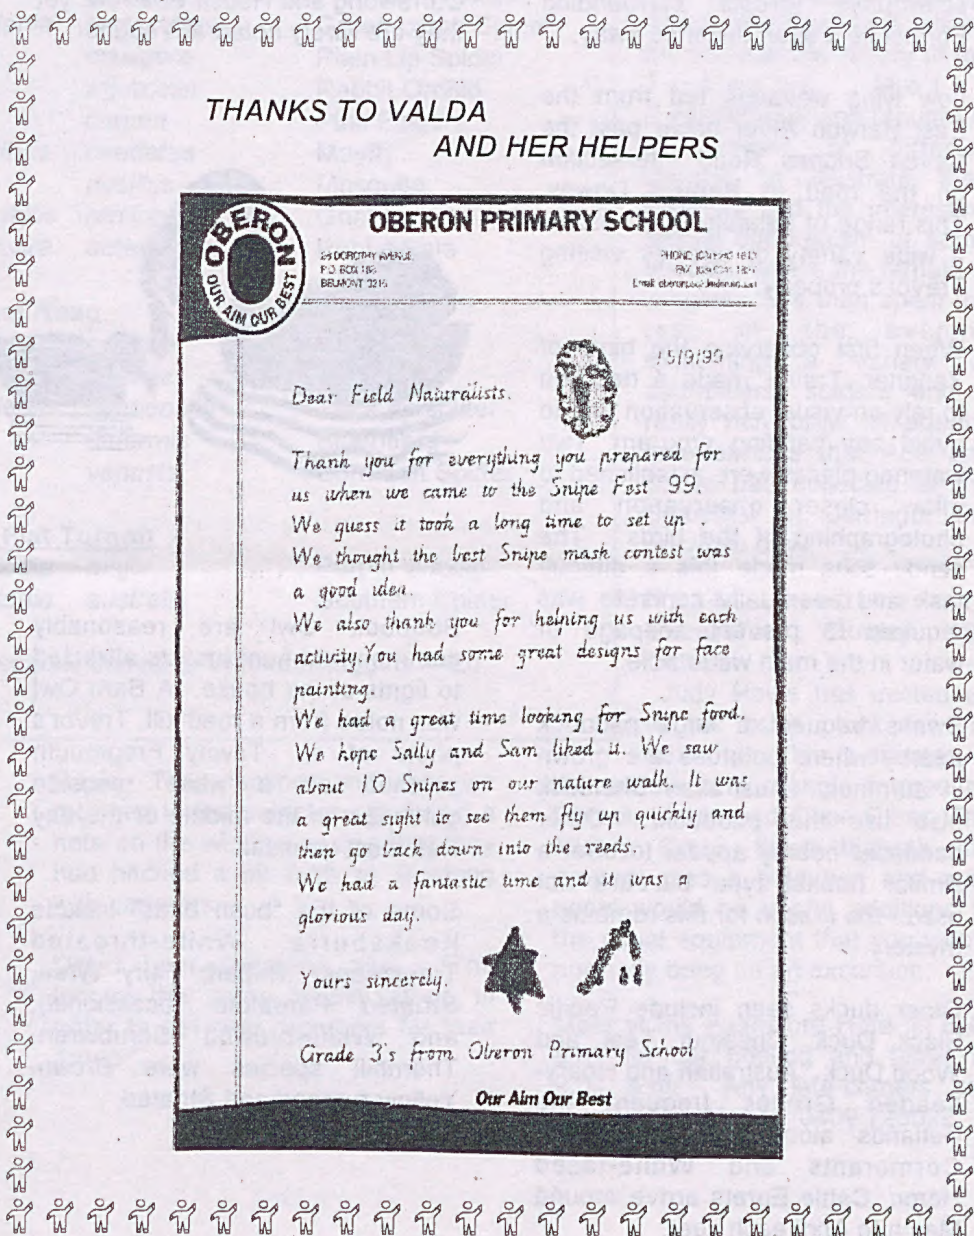 THANKS TO VALDA
AND HER HELPERS
OBERON
OUR AIM OUR BEST
OBERON PRIMARY SCHOOL
DOROTHY AVENUE,
P.O. BOX
BELMONT 3216
PHONE
FAX
Email
15/9/99
Dear Field Naturalists,
Thank you for everything you prepared for
us when we came to the Snipe Fest 99.
We guess it took a long time to set up.
We thought the best Snipe mask contest was
a good idea.
We also thank you for helping us with each
activity. You had some great designs for face
painting.
We had a great time looking for Snipe food.
We hope Sally and Sam liked it. We saw
about 10 Snipes on our nature walk. It was
a great sight to see them fly up quickly and
then go back down into the reeds.
We had a fantastic time and it was a
glorious day.
Yours sincerely,
Grade 3's from Oberon Primary School
Our Aim Our Best